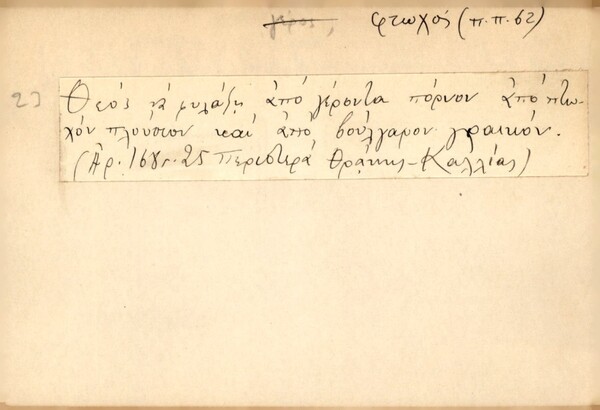 γέρος, φτωχός (π.π. 62)
23 Θεός νά φυλάξῃ ἀπό γέροντα πόρνον ἀπό πτω-
χόν πλούσιον καί ἀπό βούλγαρον γραικόν.
(Ἀρ. 1681. 25 Περιστερά Θράκης - Καλλίας)